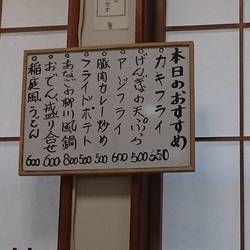 本日のおすすめ
カキフライ 650
げんげの天ぷら 500
アジフライ 600
豚肉カレー炒め 500
フライドポテト 500
あなごの柳川風鍋 800
おでん盛り合せ 600
稲庭風うどん 600